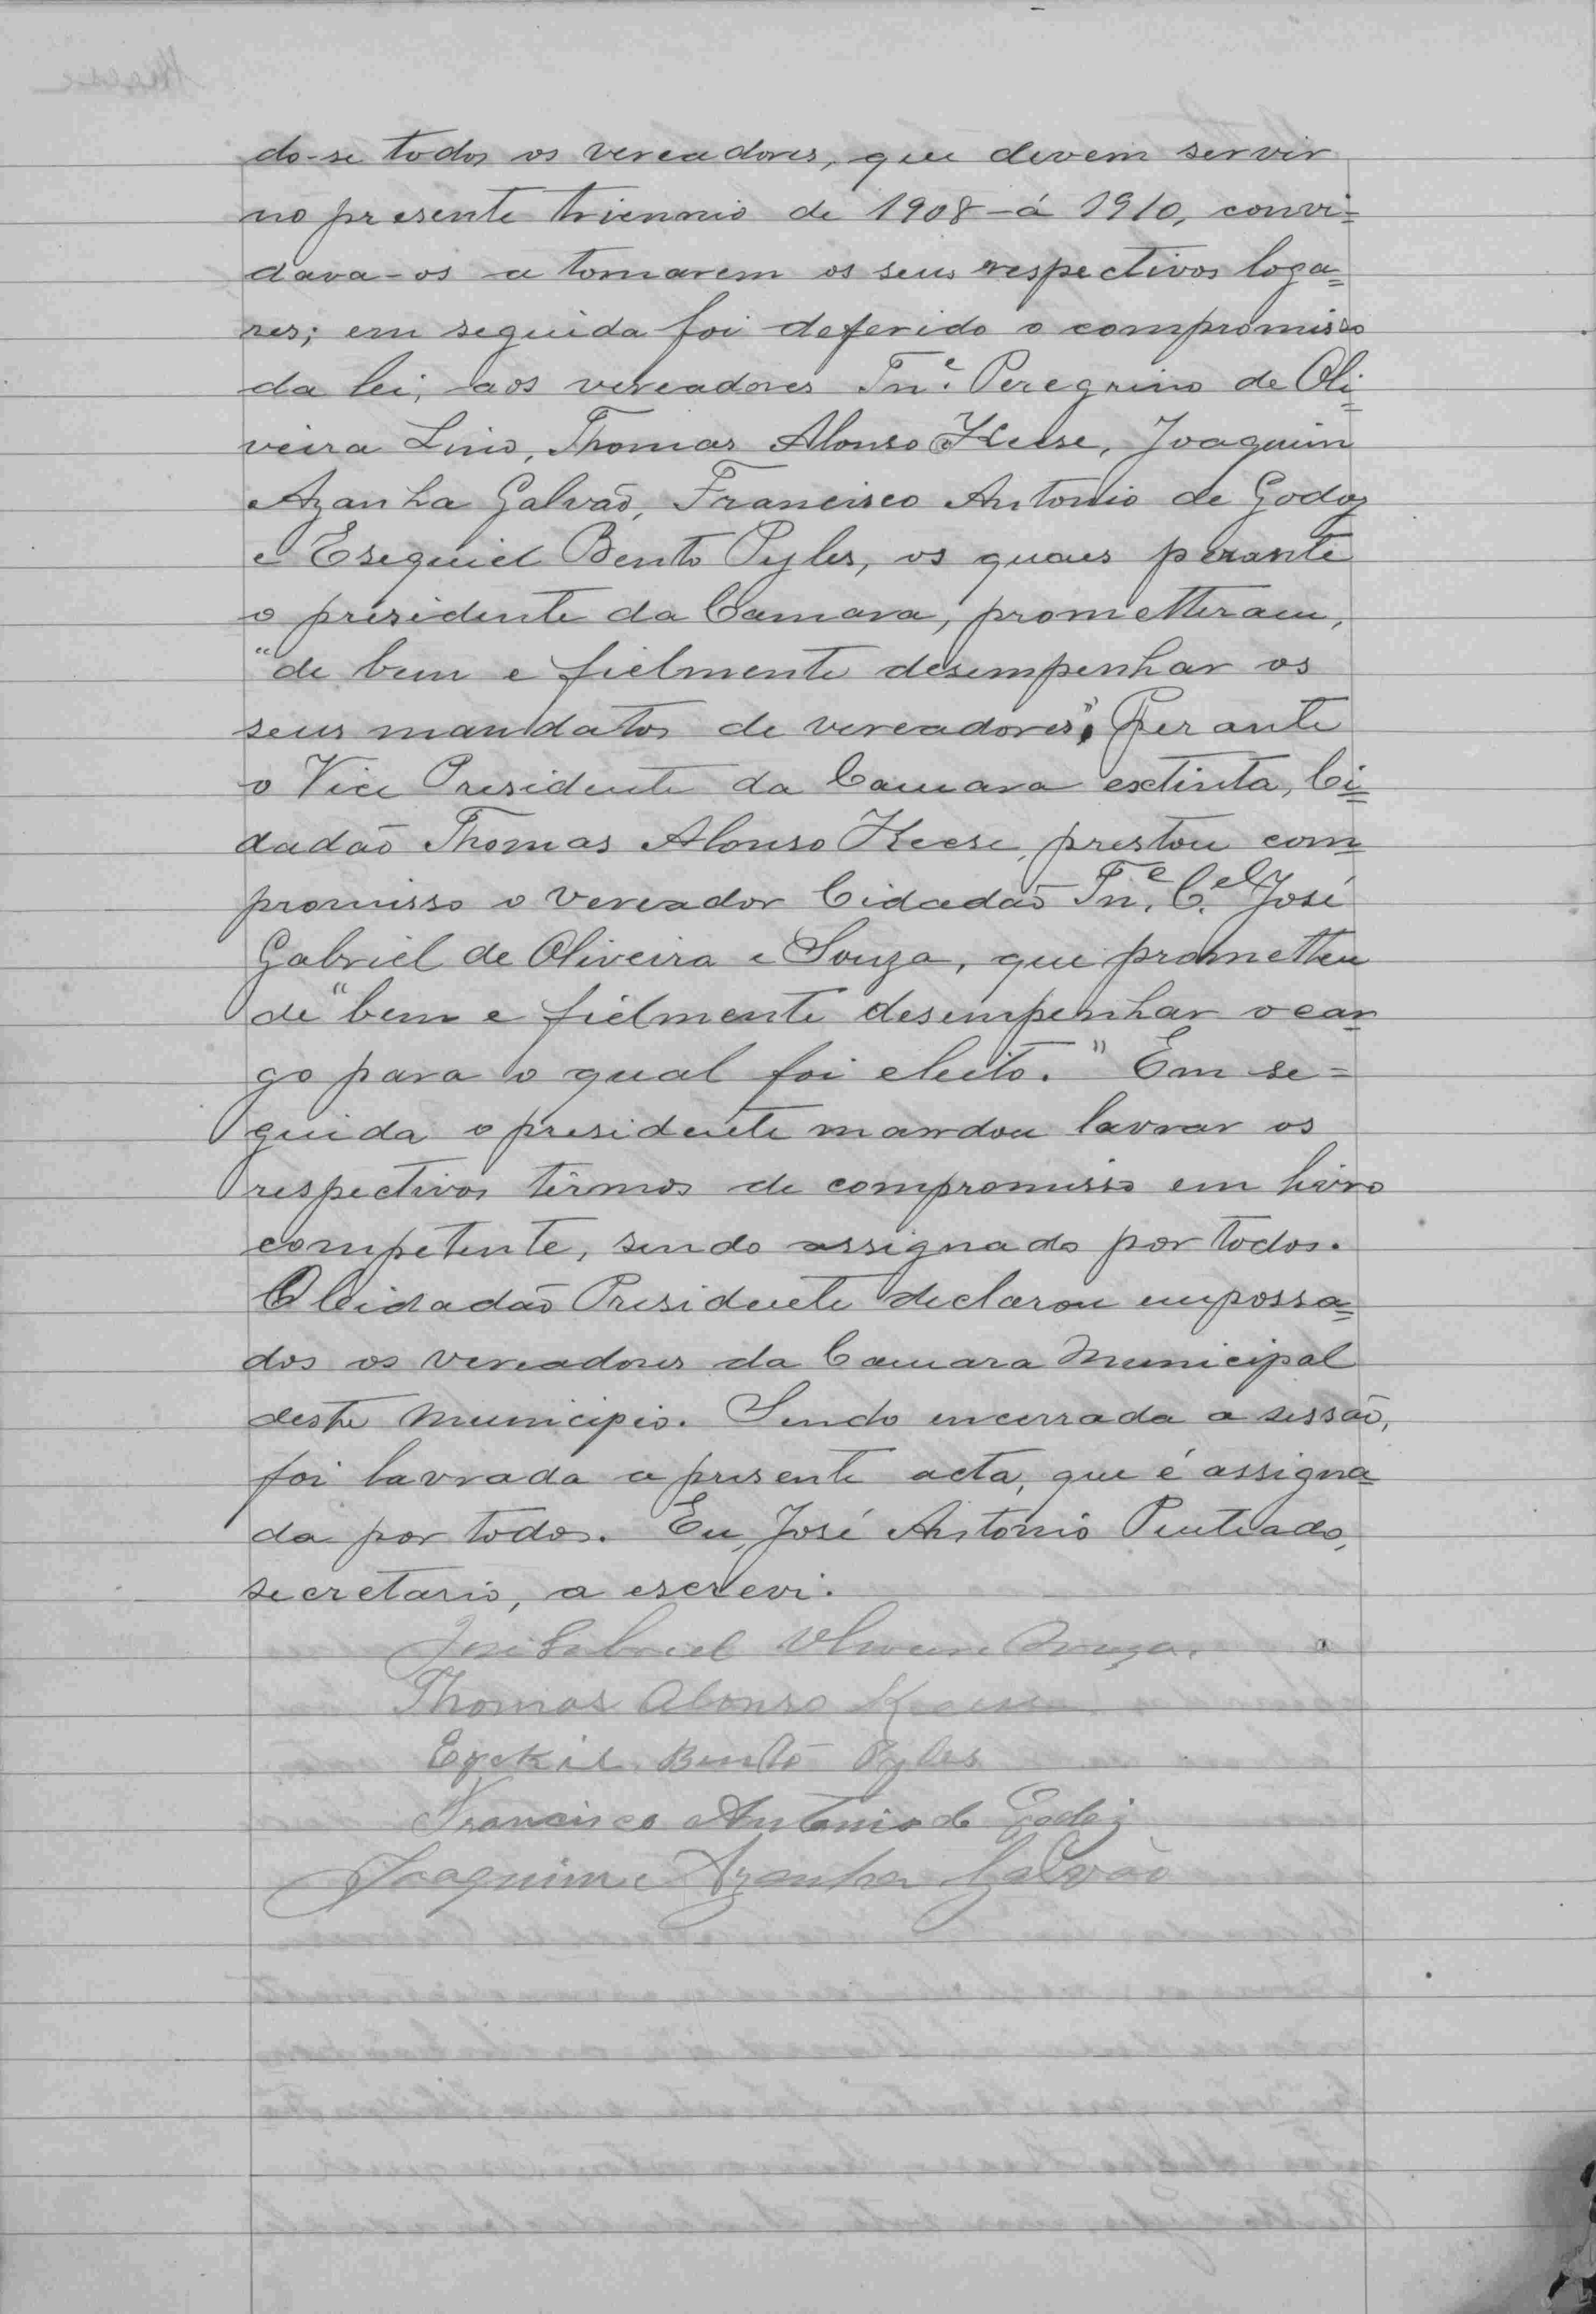 do-se todos os vereadores, que devem servir
no presente triennio de 1908-á 1910, convi=
dava-os a tomarem os seus respectivos loga=
res; em seguida foi deferido o compromisso
da lei, aos vereadores Tn.e Peregrino de Oli=
veira Lino, Thomas Alonso Keese, Joaquim
Azanha Galvão, Francisco Antonio de Godoy
e Esequiel Bento Pyles, os quaes perante
o presidente da Camara, prometteram,
"de bem e fielmente desempenhar os
seus mandatos de vereadores". Perante
o Vice Presidente da Camara extinta, Ci=
dadão Thomas Alonso Keese, prestou com=
promisso o vereador Cidadão Tn.e C.el José
Gabriel de Oliveira e Souza, que prometteu
de "bem e fielmente desempenhar o car=
go para o qual foi eleito." Em se=
guida o presidente mandou lavrar os
respectivos têrmos de compromisso em livro
competente, sendo assignado por todos.
O Cidadão Presidente declarou empossa=
dos os vereadores da Camara Municipal
deste Municipio. Sendo encerrada a sessão,
foi lavrada a presente acta, que é assigna=
da por todos. Eu, José Antonio Penteado,
secretario, a escrevi.
José Gabriel Oliveira Souza.
Thomas Alonso Keese
Ezekiel Bento Pyles
Francisco Antonio de Godoi
Joaquim Azanha Galvão